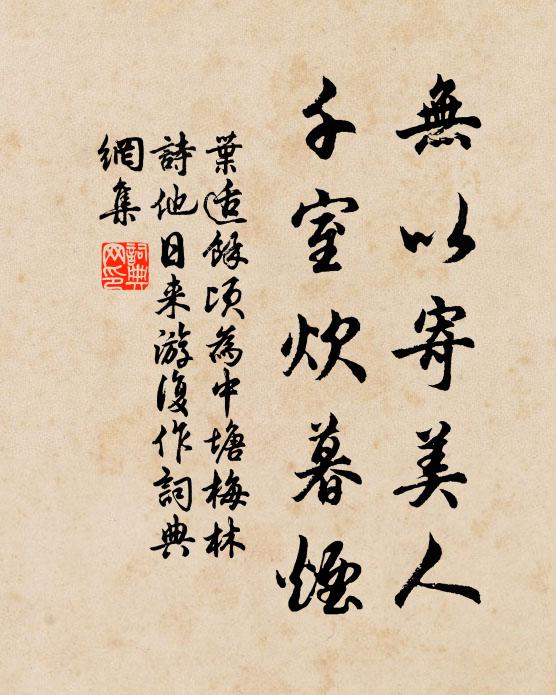 無以寄美人
千室炊暮煙
葉適餘頃為中塘梅林
詩他日来游復作詞典
網集
詞典网印